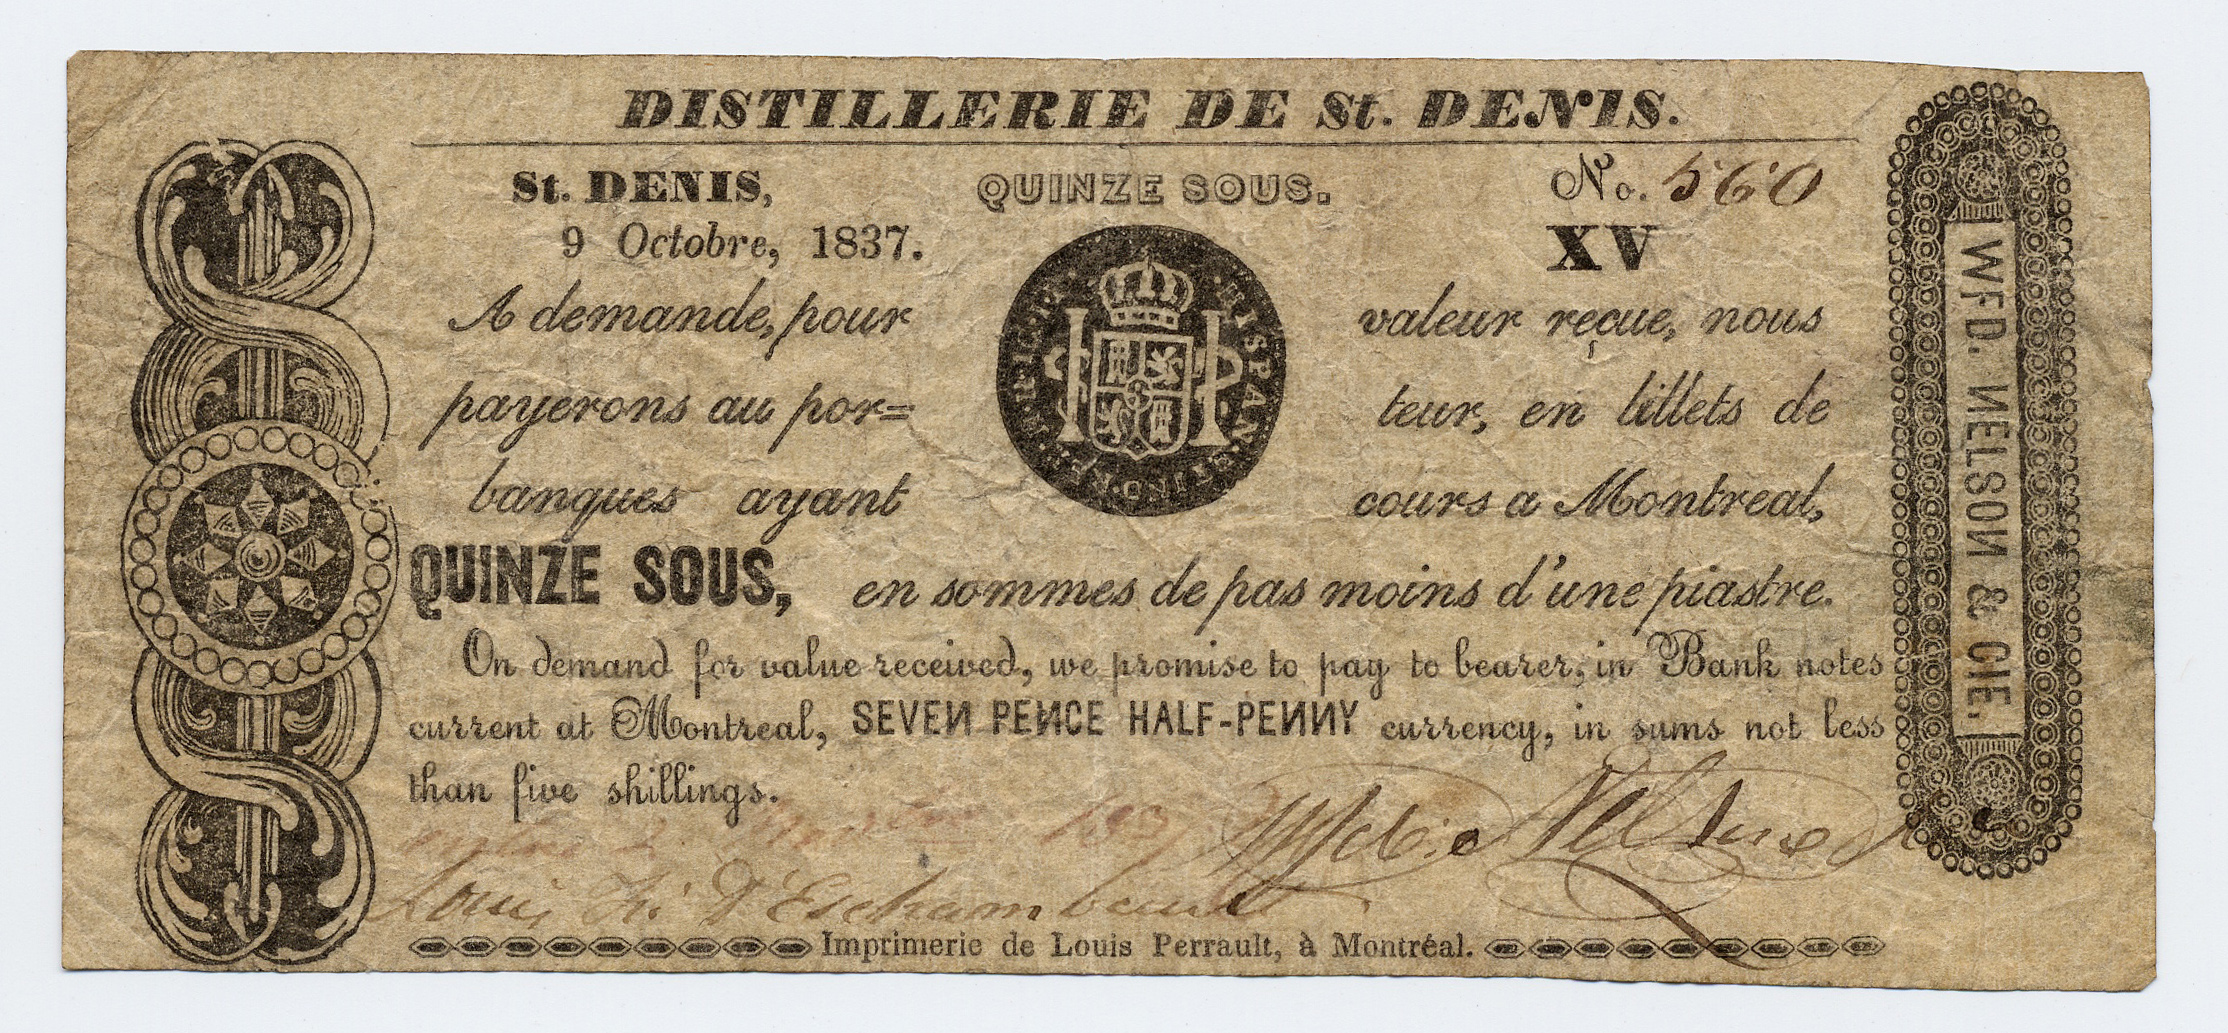 DISTILLERIE DE St. DENIS.
St. DENIS, QUINZE SOUS. No. 560
9 Octobre, 1837. XV
A demande, pour valeur reçue, nous
payerons au por= teur, en billets de
banques ayant cours a Montreal,
QUINZE SOUS, en sommes de pas moins d'une piastre.
On demand for value received, we promise to pay to bearer, in Bank notes
current at Montreal, SEVEN PENCE HALF-PENNY currency, in sums not less
than five shillings.
Wfd. Nelson
Louis D'Eschambault
Imprimerie de Louis Perrault, à Montréal.
WFD. NELSON & CIE.
HISPAN